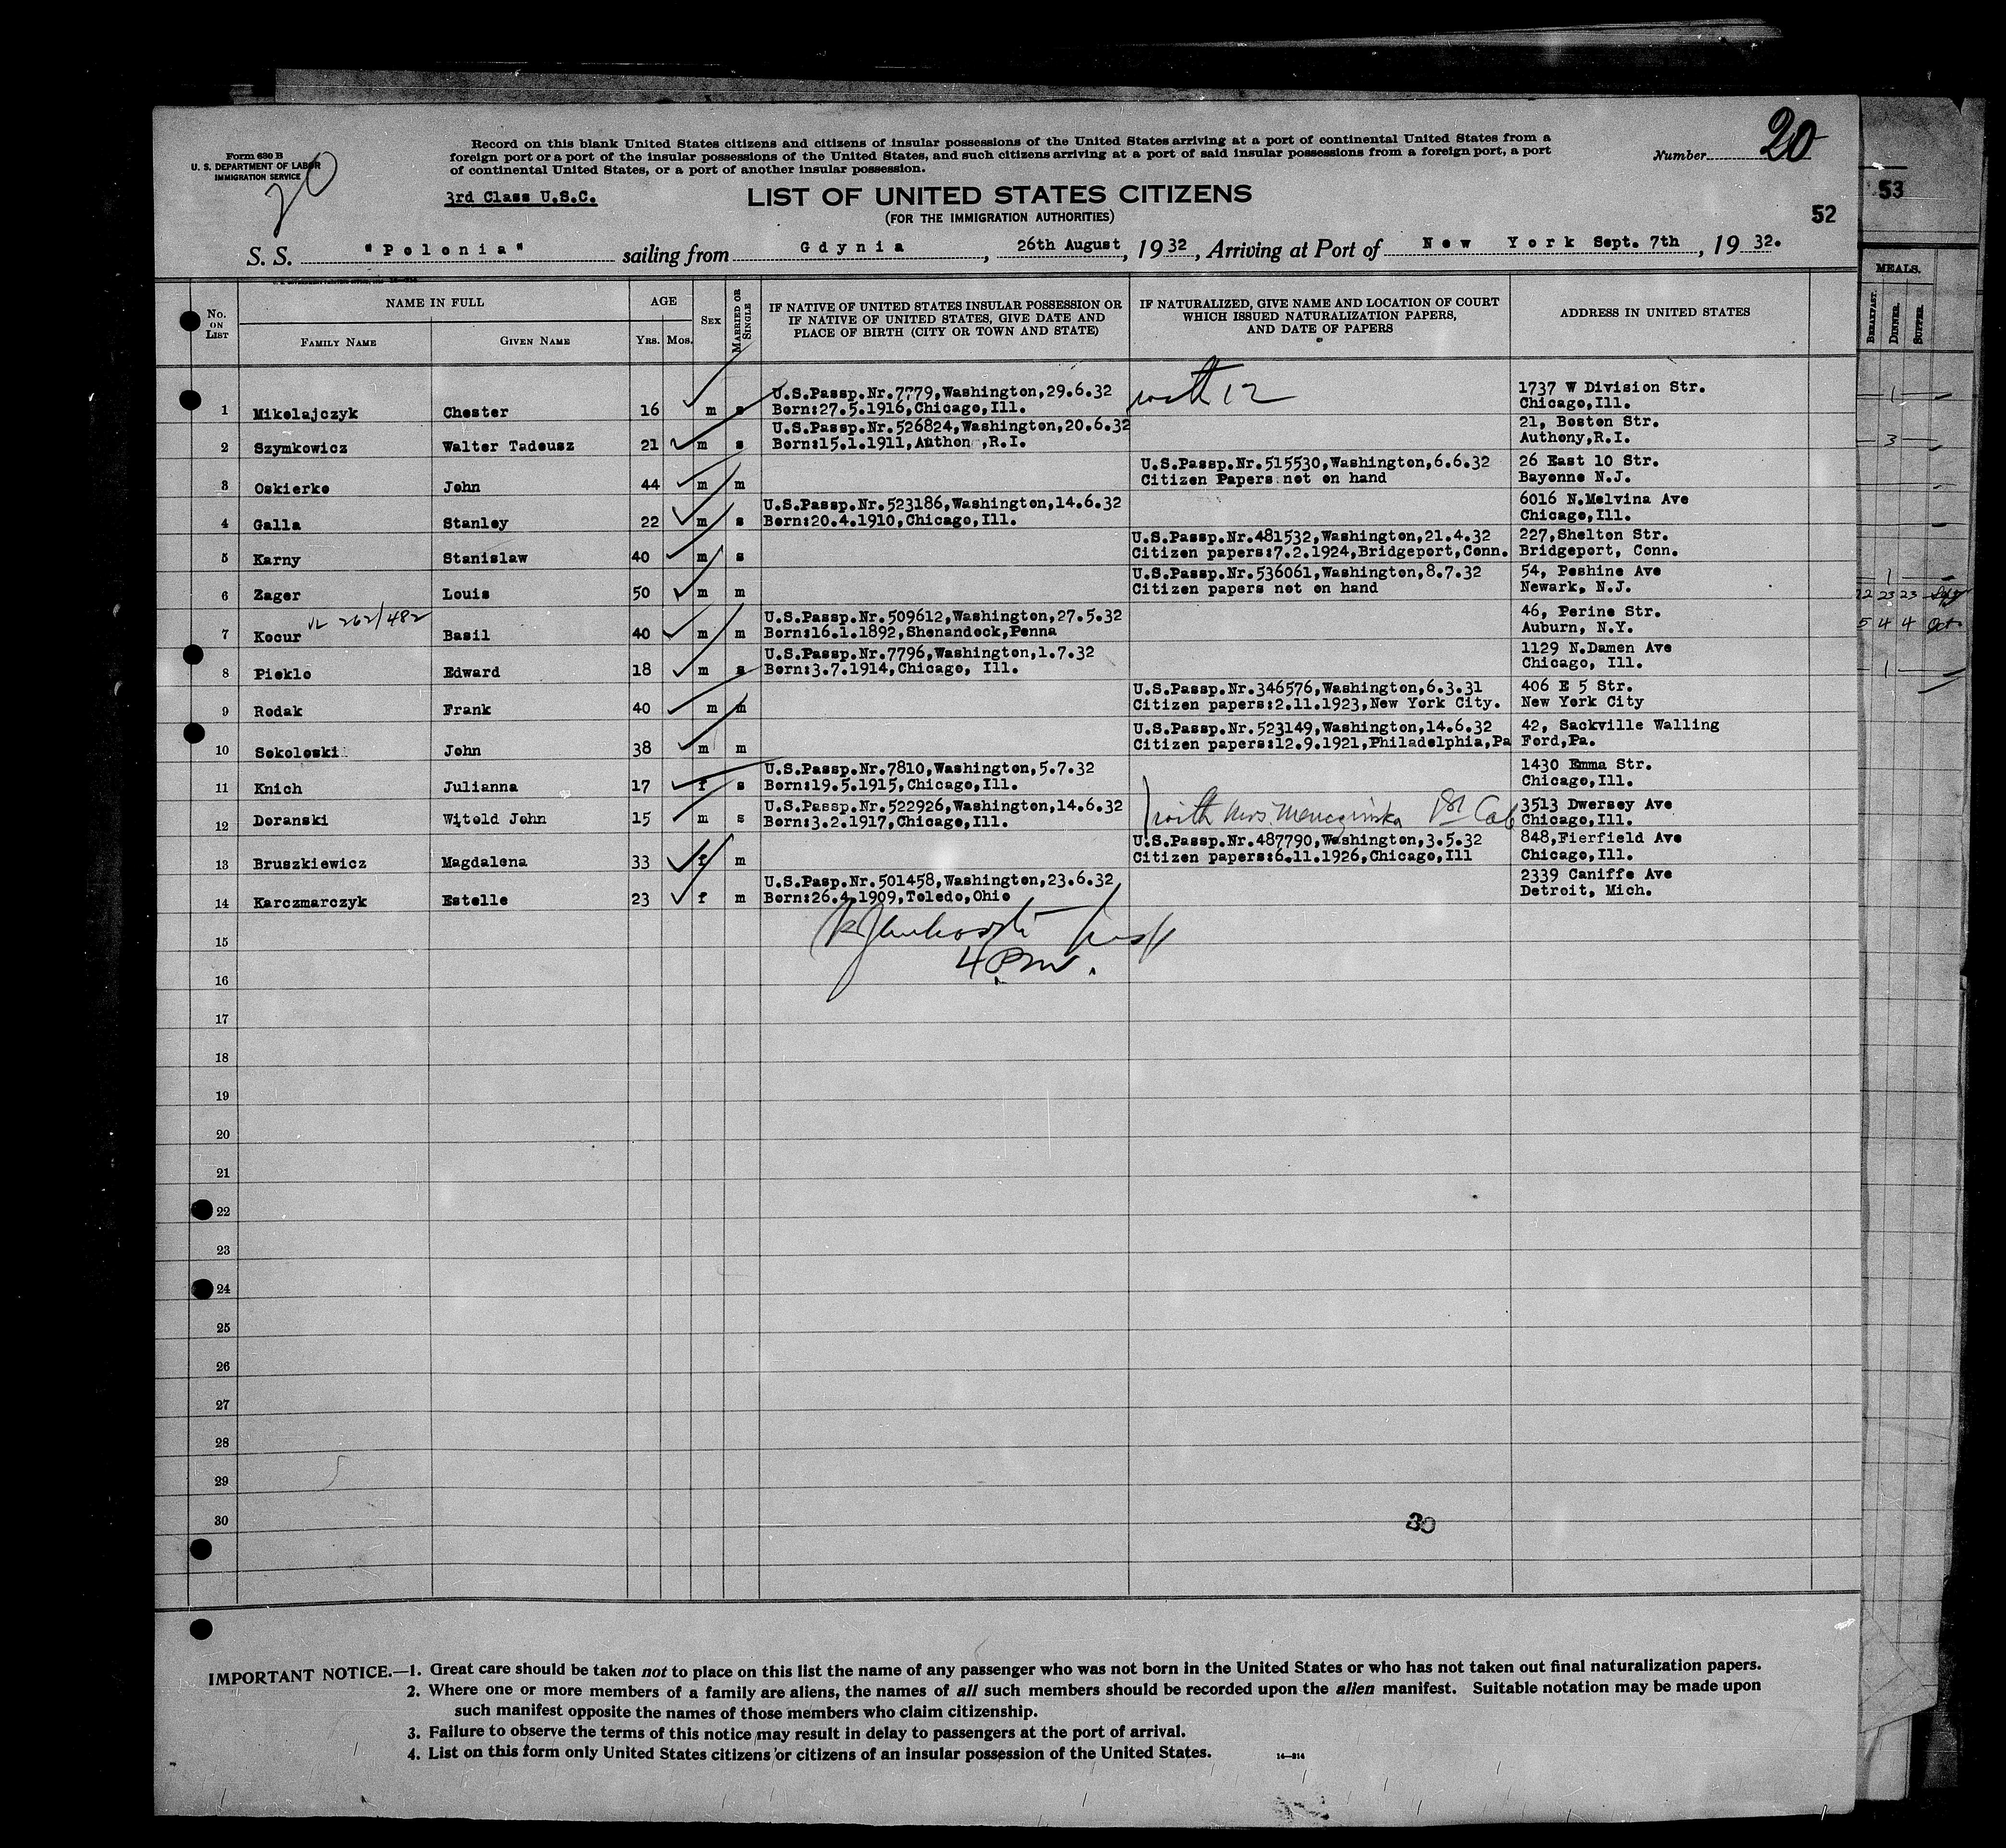 Form 630 B
U. S. DEPARTMENT OF LABOR
IMMIGRATION SERVICE
20
Record on this blank United States citizens and citizens of insular possessions of the United States arriving at a port of continental United States from a
foreign port or a port of the insular possessions of the United States, and such citizens arriving at a port of said insular possessions from a foreign port, a port
of continental United States, or a port of another insular possession.
Number 20
3rd Class U.S.C.
LIST OF UNITED STATES CITIZENS
(FOR THE IMMIGRATION AUTHORITIES)
52
53
S. S. "Polonia" sailing from Gdynia, 26th August, 1932, Arriving at Port of New York Sept. 7th, 1932.
No. ON LIST
NAME IN FULL
FAMILY NAME
GIVEN NAME
AGE
YRS. MOS.
SEX
MARRIED OR SINGLE
IF NATIVE OF UNITED STATES INSULAR POSSESSION OR
IF NATIVE OF UNITED STATES, GIVE DATE AND
PLACE OF BIRTH (CITY OR TOWN AND STATE)
IF NATURALIZED, GIVE NAME AND LOCATION OF COURT
WHICH ISSUED NATURALIZATION PAPERS,
AND DATE OF PAPERS
ADDRESS IN UNITED STATES
MEALS.
BREAKFAST.
DINNER.
SUPPER.
U.S.Passp.Nr.7779,Washington,29.6.32 with 12 1737 W Division Str.
1 Mikolajczyk Chester 16 m s Born:27.5.1916,Chicago,Ill. Chicago,Ill.
U.S.Passp.Nr.526824,Washington,20.6.32 21, Boston Str.
2 Szymkowicz Walter Tadeusz 21 m s Born:15.1.1911,Authon ,R.I. Authony,R.I.
U.S.Passp.Nr.515530,Washington,6.6.32 26 East 10 Str.
3 Oskierko John 44 m m Citizen Papers not on hand Bayonne N.J.
U.S.Passp.Nr.523186,Washington,14.6.32 6016 N.Melvina Ave
4 Galla Stanley 22 m s Born:20.4.1910,Chicago,Ill. Chicago,Ill.
U.S.Passp.Nr.481532,Washington,21.4.32 227,Shelton Str.
5 Karny Stanislaw 40 m s Citizen papers:7.2.1924,Bridgeport,Conn. Bridgeport, Conn.
U.S.Passp.Nr.536061,Washington,8.7.32 54, Peshine Ave
6 Zager Louis 50 m m Citizen papers not on hand Newark, N.J.
262/482 U.S.Passp.Nr.509612,Washington,27.5.32 46, Perine Str.
7 Kocur Basil 40 m m Born:16.1.1892,Shenandock,Penna Auburn, N.Y.
U.S.Passp.Nr.7796,Washington,1.7.32 1129 N.Damen Ave
8 Pieklo Edward 18 m s Born:3.7.1914,Chicago, Ill. Chicago, Ill.
U.S.Passp.Nr.346576,Washington,6.3.31 406 E 5 Str.
9 Rodak Frank 40 m m Citizen papers:2.11.1923,New York City. New York City
U.S.Passp.Nr.523149,Washington,14.6.32 42, Sackville Walling
10 Sokoloski John 38 m m Citizen papers:12.9.1921,Philadelphia,Pa Ford,Pa.
U.S.Passp.Nr.7810,Washington,5.7.32 1430 Emma Str.
11 Knich Julianna 17 f s Born:19.5.1915,Chicago,Ill. Chicago,Ill.
U.S.Passp.Nr.522926,Washington,14.6.32 with Mrs. 1st Cab 3513 Dwersey Ave
12 Doranski Witold John 15 m s Born:3.2.1917,Chicago,Ill. Chicago,Ill.
U.S.Passp.Nr.487790,Washington,3.5.32 848,Fierfield Ave
13 Bruszkiewicz Magdalena 33 f m Citizen papers:6.11.1926,Chicago,Ill Chicago,Ill.
U.S.Pasp.Nr.501458,Washington,23.6.32 2339 Caniffe Ave
14 Karczmarczyk Estelle 23 f m Born:26.4.1909,Toledo,Ohio Detroit, Mich.
15
16
17
18
19
20
21
22
23
24
25
26
27
28
29
30
30
IMPORTANT NOTICE.—1. Great care should be taken not to place on this list the name of any passenger who was not born in the United States or who has not taken out final naturalization papers.
2. Where one or more members of a family are aliens, the names of all such members should be recorded upon the alien manifest. Suitable notation may be made upon
such manifest opposite the names of those members who claim citizenship.
3. Failure to observe the terms of this notice may result in delay to passengers at the port of arrival.
4. List on this form only United States citizens or citizens of an insular possession of the United States.
14—814